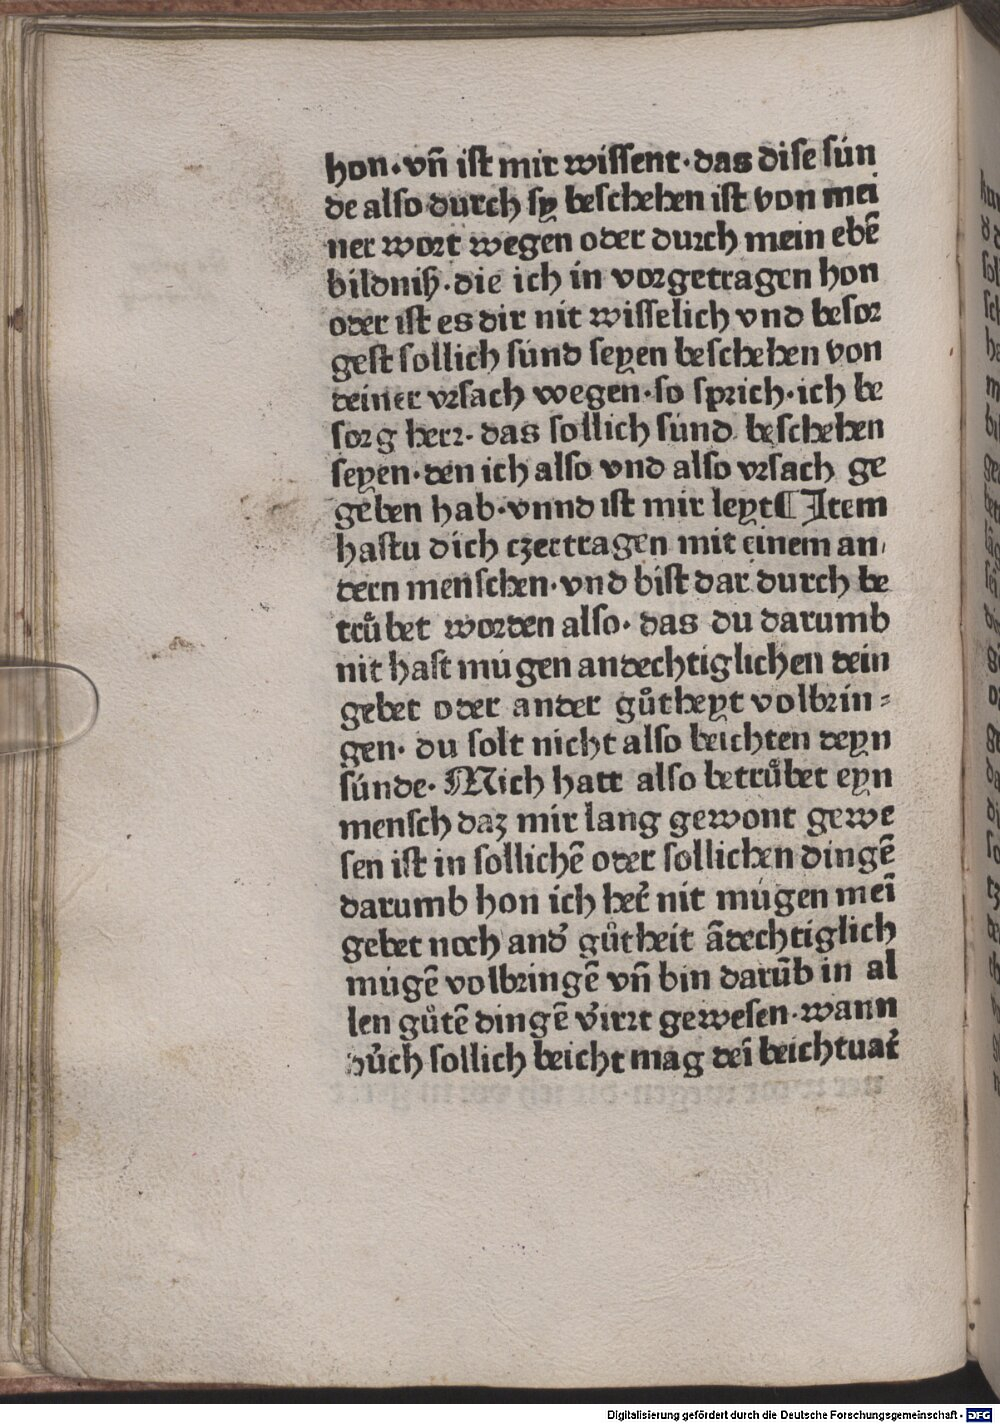 hon·vn̄ ist mir wissent·das dise sún
de also durch sy beschehen ist von mei
ner wort wegen oder durch mein ebē
bildniß·die ich in vorgetragen hon
oder ist es dir nit wisselich vnd besor
gest sollich súnd seyen beschehen von
deiner vrsach wegen·so sprich·ich be
sorg herr·das sollich súnd beschehen
seyen·den ich also vnd also vrsach ge
geben hab·vnnd ist mir leyt¶ Item
hastu dich czertragen mit einem an,
dern menschen·vnd bist dar durch be
trůbet worden also·das du darumb
nit hast mugen andechtiglichen dein
gebet oder ander gůtheyt volbrin⸗
gen·du solt nicht also beichten deyn
súnde·Mich hatt also betrůbet eyn
mensch daz mir lang gewont gewe
sen ist in sollichē oder sollichen dingē
darumb hon ich her̓ nit mugen meī
gebet noch and̓ gůtheit ādechtiglich
mugē volbringē vn̄ bin darūb in al
len gůtē dingē v̓irrt gewesen·wann
důch sollich beicht mag deī beichtuat̓
Digitalisierung gefördert durch die Deutsche Forschungsgemeinschaft - DFG